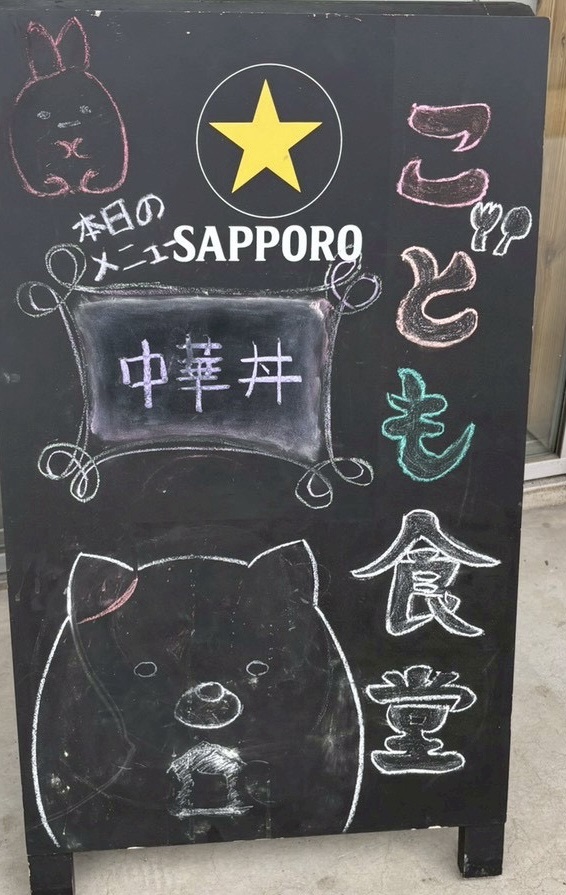 こども食堂
SAPPORO
本日の
メニュー
中華丼